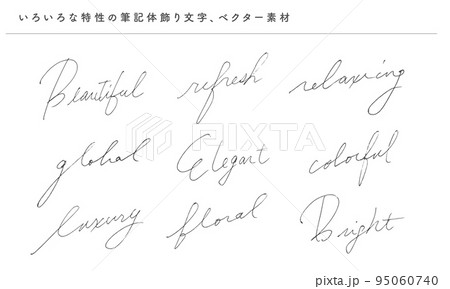 いろいろな特性の筆記体飾り文字、ベクター素材
Beautiful refresh relaxing
global Elegant colorful
luxury floral Bright
PIXTA
pixta.jp - 95060740